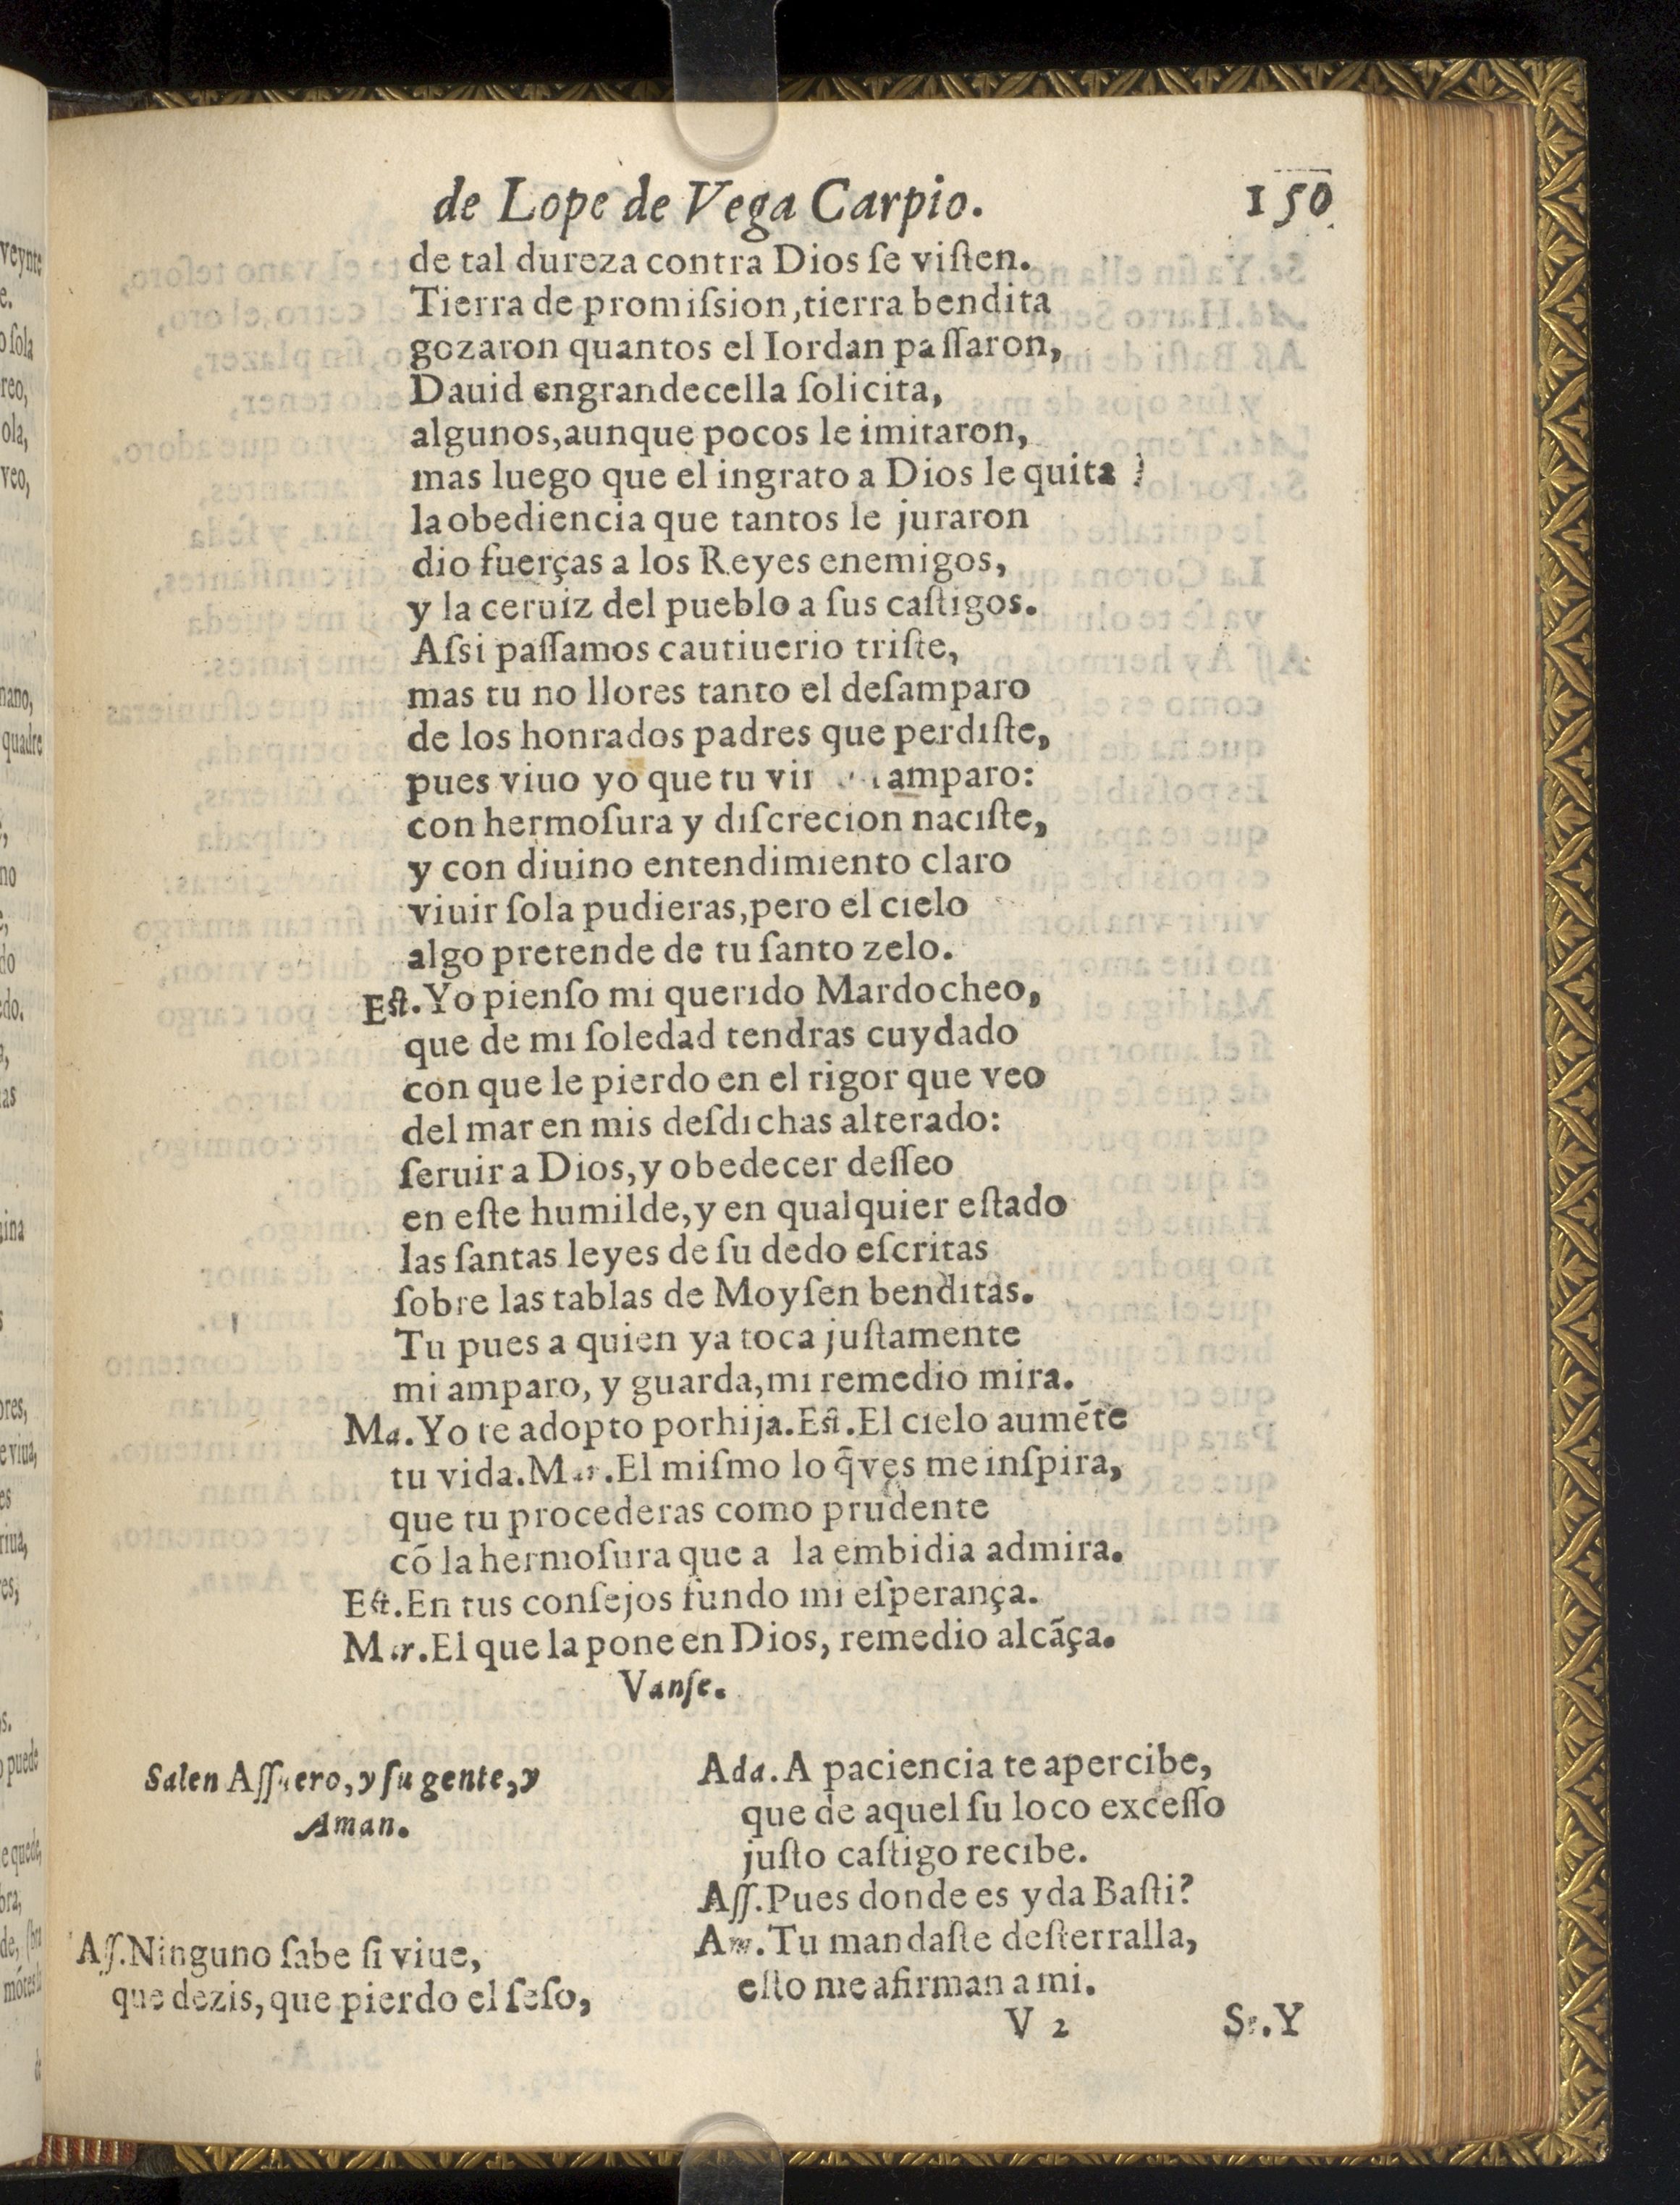 de Lope de Vega Carpio. 150
de tal dureza contra Dios ſe viſten.
Tierra de promiſsion, tierra bendita
gozaron quantos el Iordan paſſaron,
Dauid engrandecella ſolicita,
algunos, aunque pocos le imitaron,
mas luego que el ingrato a Dios le quita
la obediencia que tantos le juraron
dio fuerças a los Reyes enemigos,
y la ceruiz del pueblo a ſus caſtigos.
Aſsi paſſamos cautiuerio triſte,
mas tu no llores tanto el deſamparo
de los honrados padres que perdiſte,
pues viuo yo que tu amparo:
con hermoſura y diſcrecion naciſte,
y con diuino entendimiento claro
viuir ſola pudieras, pero el cielo
algo pretende de tu ſanto zelo.
Eſt. Yo pienſo mi querido Mardocheo,
que de mi ſoledad tendras cuydado
con que le pierdo en el rigor que veo
del mar en mis deſdichas alterado:
ſeruir a Dios, y obedecer deſſeo
en eſte humilde, y en qualquier eſtado
las ſantas leyes de ſu dedo eſcritas
ſobre las tablas de Moyſen benditas.
Tu pues a quien ya toca juſtamente
mi amparo, y guarda, mi remedio mira.
Ma. Yo te adopto por hija. Eſt. El cielo aumẽte
tu vida. Mar. El miſmo lo q̃ ves me inſpira,
que tu procederas como prudente
cõ la hermoſura que a la embidia admira.
Eſt. En tus conſejos fundo mi eſperança.
Mar. El que la pone en Dios, remedio alcãça.
Vanſe.
Salen Aſſuero, y ſu gente, y
Aman.
Aſſ. Ninguno ſabe ſi viue,
que dezis, que pierdo el ſeſo,
Ada. A paciencia te apercibe,
que de aquel ſu loco exceſſo
juſto caſtigo recibe.
Aſſ. Pues donde es yda Baſti?
Am. Tu mandaſte deſterralla,
eſto me afirman a mi.
V 2 Se. Y